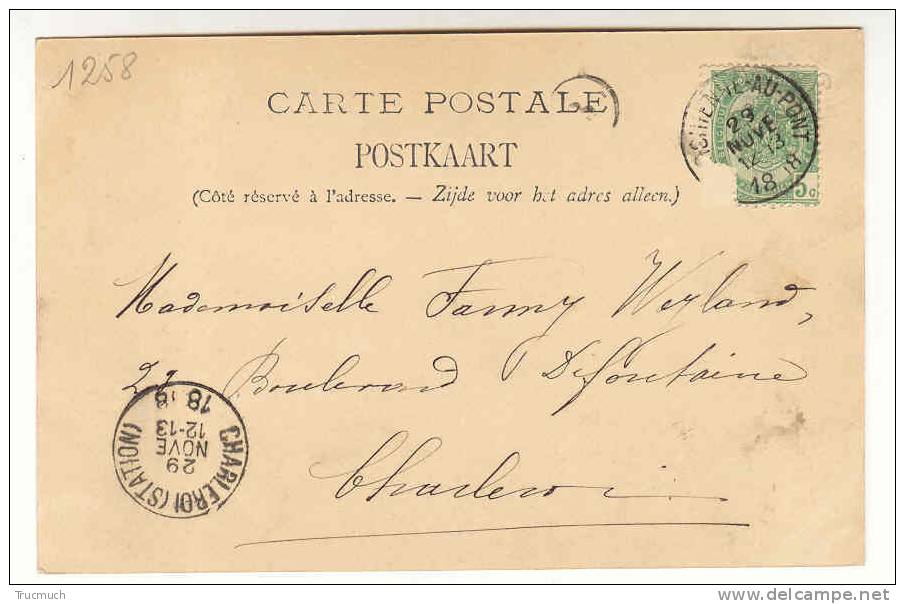 1258
CARTE POSTALE
POSTKAART
(Côté réservé à l'adresse. — Zijde voor het adres alleen.)
MARCHIENNE-AU-PONT
29
NOVE
12-13
18 8
5c
Mademoiselle Fanny Weyland,
27 Boulevard Defontaine
Charleroi
CHARLEROI (STATION)
29
NOVE
12-13
18 8
Trucmuch
www.delcampe.net